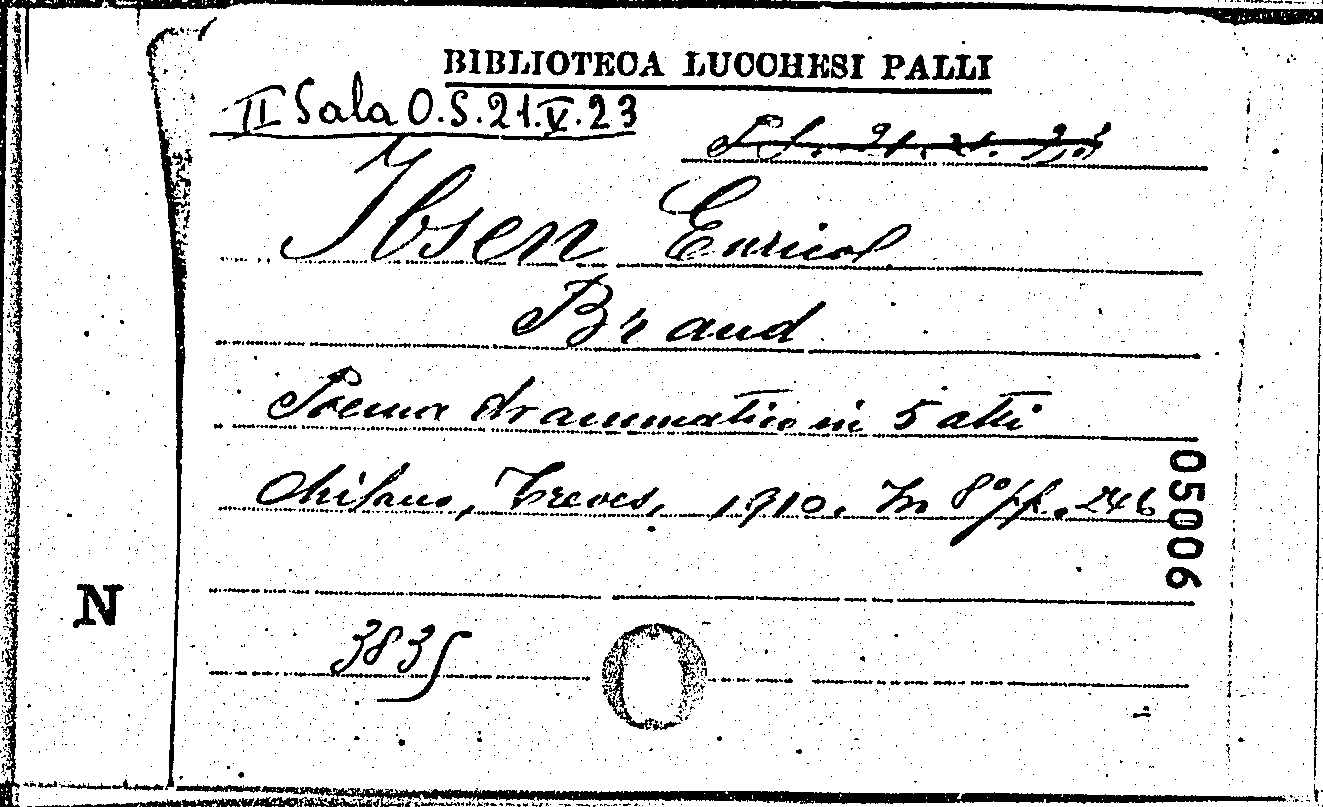 BIBLIOTECA LUCCHESI PALLI
II Sala O.S.21.V.23
Ibsen Enrico
Brand
Poema drammatico in 5 atti
Milano, Treves, 1910. In 8° pp. 246
05006
N
3835